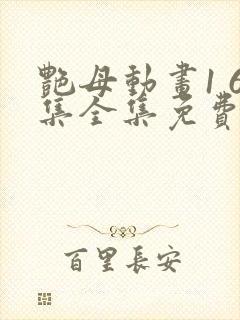 艷母動畫16
集全集免費
百里長安